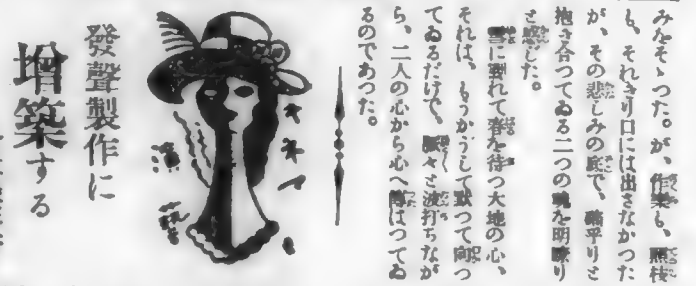 みをそゝつた。が、作楽も、照枝
も、それきり口には出さなかつた
が、その悲しみの底で、犇乎りと
抱き合つてゐる二つの魂を明瞭り
と感じた。
雪に割れて春を待つ大地の心、
それは、もうかうして黙つて向つ
てゐるだけで、脈々と波打ちなが
ら、二人の心から心へ傳はつてゐ
るのであつた。
キネマ
演藝
發聲製作に
増築する